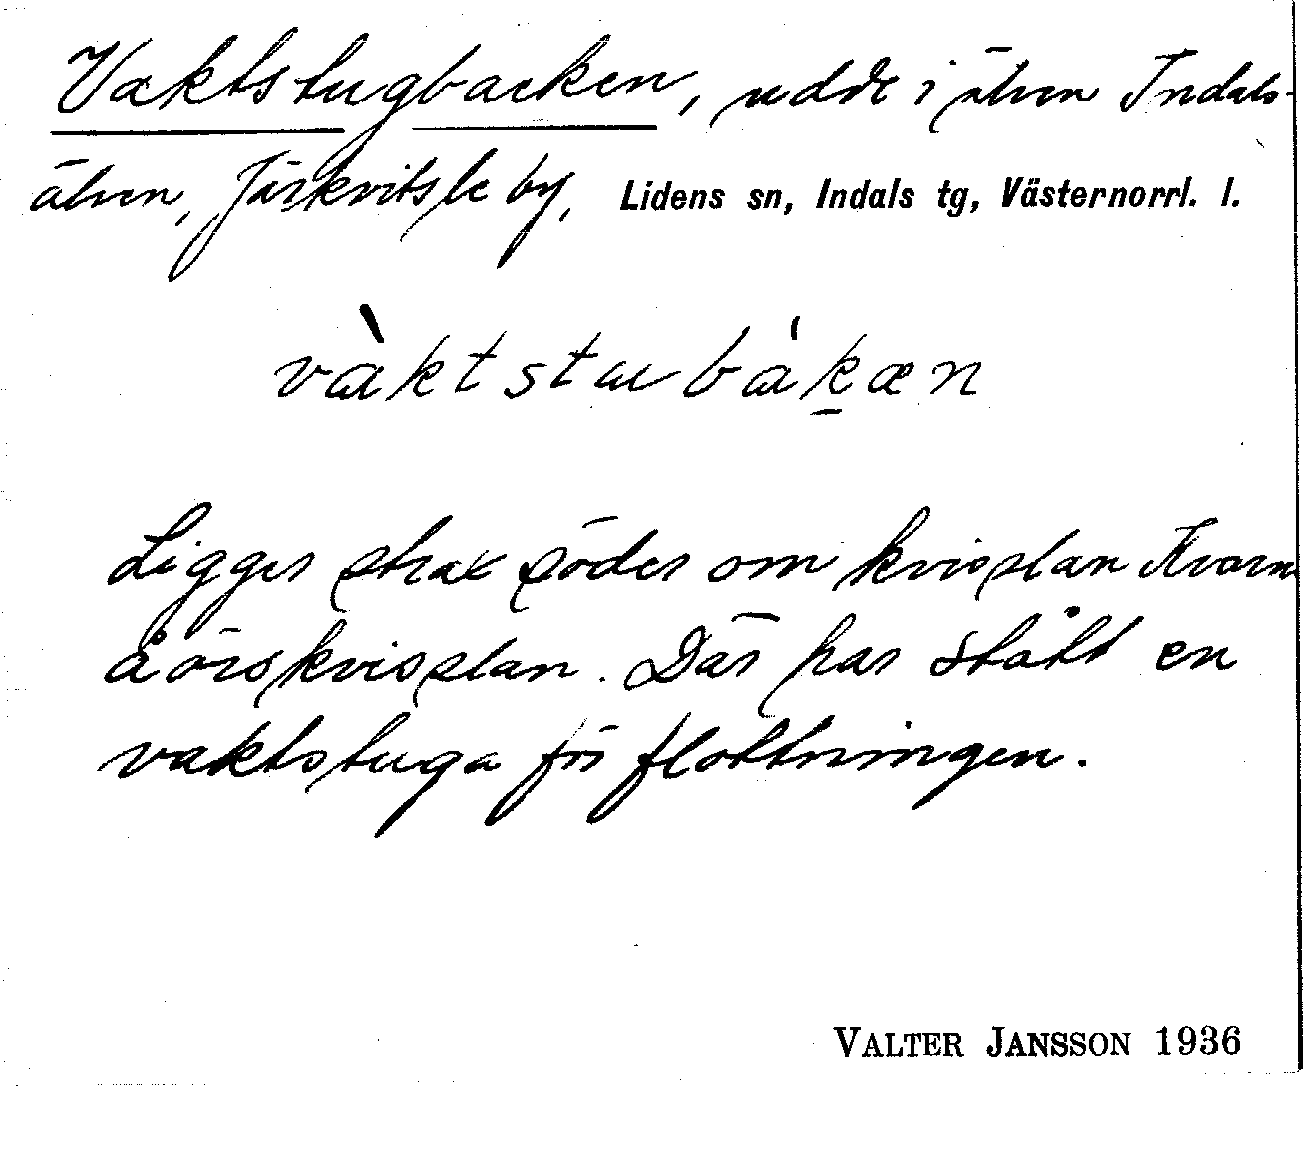 Vaktstugbacken, udde i älven Indals-
älven, Järkvitsle by, Lidens sn, Indals tg, Västernorrl. l.
vàktstubákæn
Ligger strax söder om kvisslan Kvarn
åörskvisslan. Där har stått en
vaktstuga för flottningen.
VALTER JANSSON 1936